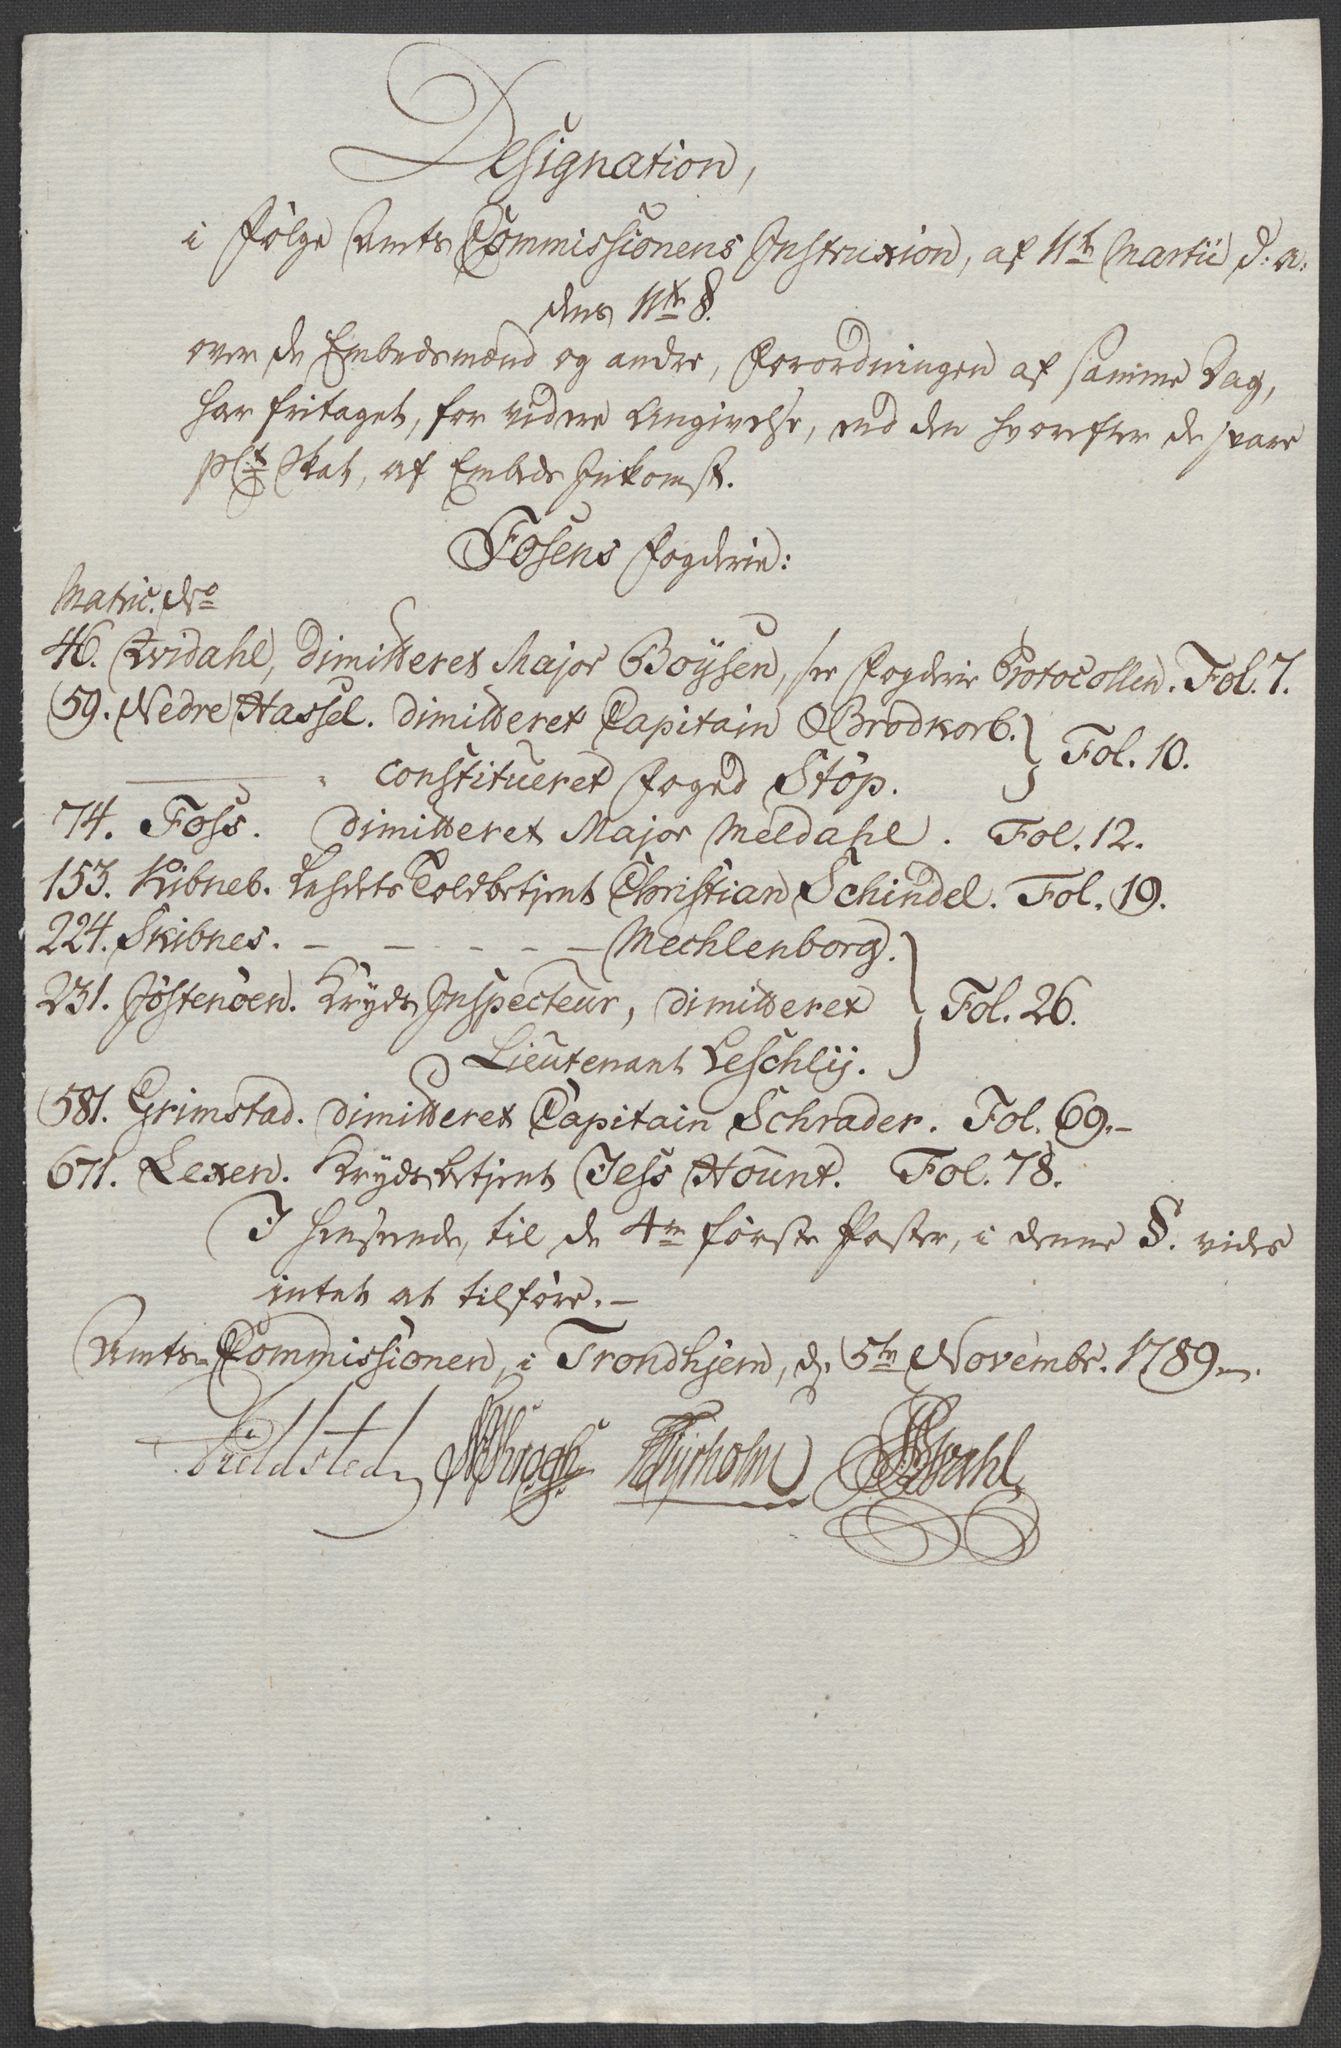 Designation,
i Følge Amts Commissionens Instruxion, af 11te Martii d: a:
dens 11te §.
over de Embedsmænd og andre, Forordningen af samme Dag,
har fritaget, for videre Angivelse, end den hvorefter de svare
pCt Skat, af Embeds Indkomst.
Fosens Fogderie:
Matric. No
46. Qvidahl, Dimitteret Major Boÿsen, see Fogderie Protocollen. Fol. 7.
59. Nedre Hassel. Dimitteret Capitain Brodkorb. } Fol. 10.
constitueret Foged Støp.
74. Foss. Dimitteret Major Meldahl. Fol. 12.
153. Toldbetjent Christian Schindel. Fol. 19.
224. Skibnes. - - - - - - Mechlenborg.
231. Jøstenøen. Krÿds Inspecteur, dimitteret } Fol. 26.
Lieutenant Leschlÿ.
581. Grimstad. dimitteret Capitain Schrader. Fol. 69.-
671. Lexen. Krÿdsbetjent Jess Hount. Fol. 78.
I henseende, til de 4re første Poster, i denne §. vides
intet at tilføre.-
Amts-Commissionen, i Trondhjem, d. 5te Novembr. 1789.
Fieldsted Krogh Thyrholm Wahl